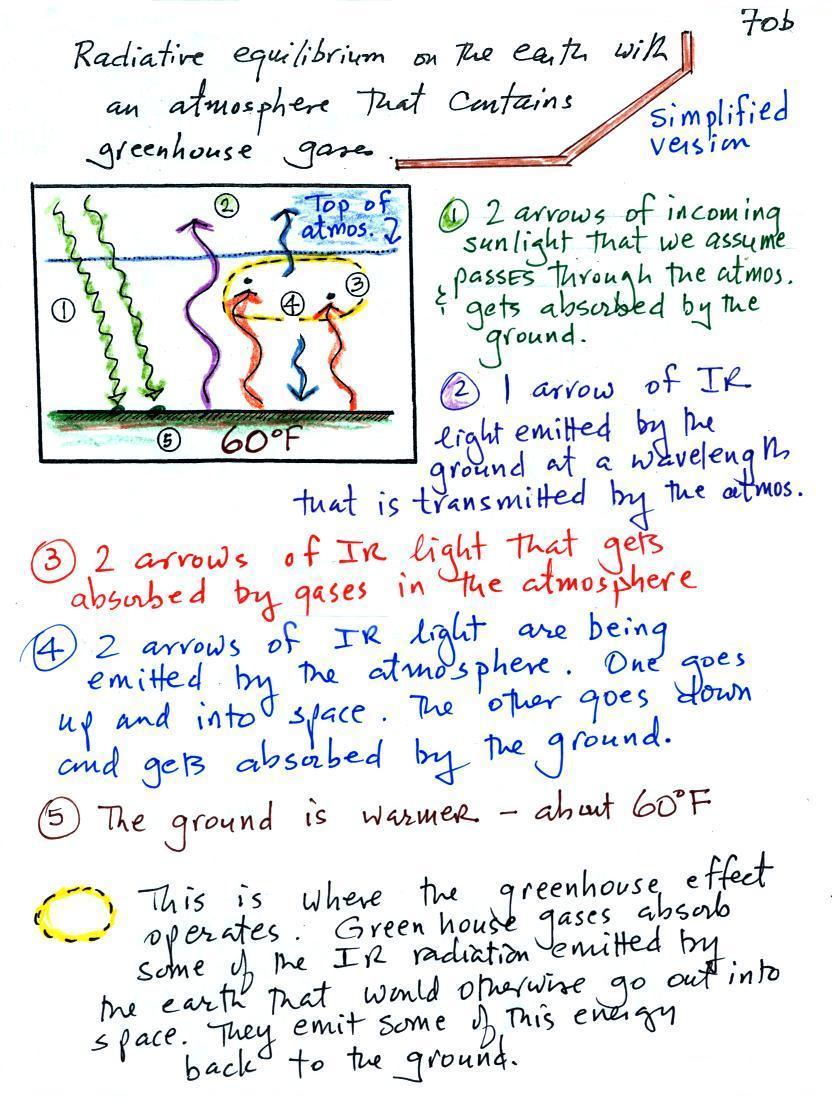 70b
Radiative equilibrium on the earth with
an atmosphere that contains
greenhouse gases.
simplified
version
Top of
atmos.
①
②
③
④
⑤
60°F
① 2 arrows of incoming
sunlight that we assume
passes through the atmos.
& gets absorbed by the
ground.
② 1 arrow of IR
light emitted by the
ground at a wavelength
that is transmitted by the atmos.
③ 2 arrows of IR light that gets
absorbed by gases in the atmosphere
④ 2 arrows of IR light are being
emitted by the atmosphere. One goes
up and into space. The other goes down
and gets absorbed by the ground.
⑤ The ground is warmer - about 60°F
This is where the greenhouse effect
operates. Green house gases absorb
some of the IR radiation emitted by
the earth that would otherwise go out into
space. They emit some of this energy
back to the ground.